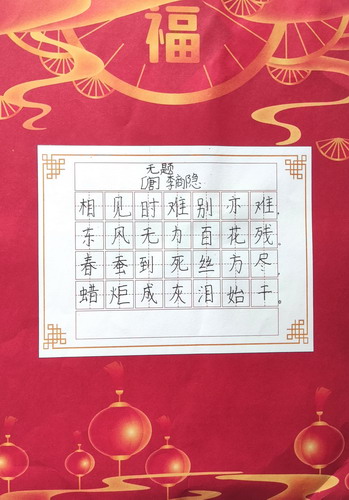 福
无题
[唐] 李商隐
相见时难别亦难，
东风无力百花残。
春蚕到死丝方尽，
蜡炬成灰泪始干。